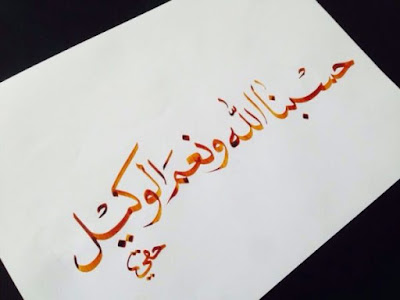 حسبنا الله ونعم الوكيل
حقي